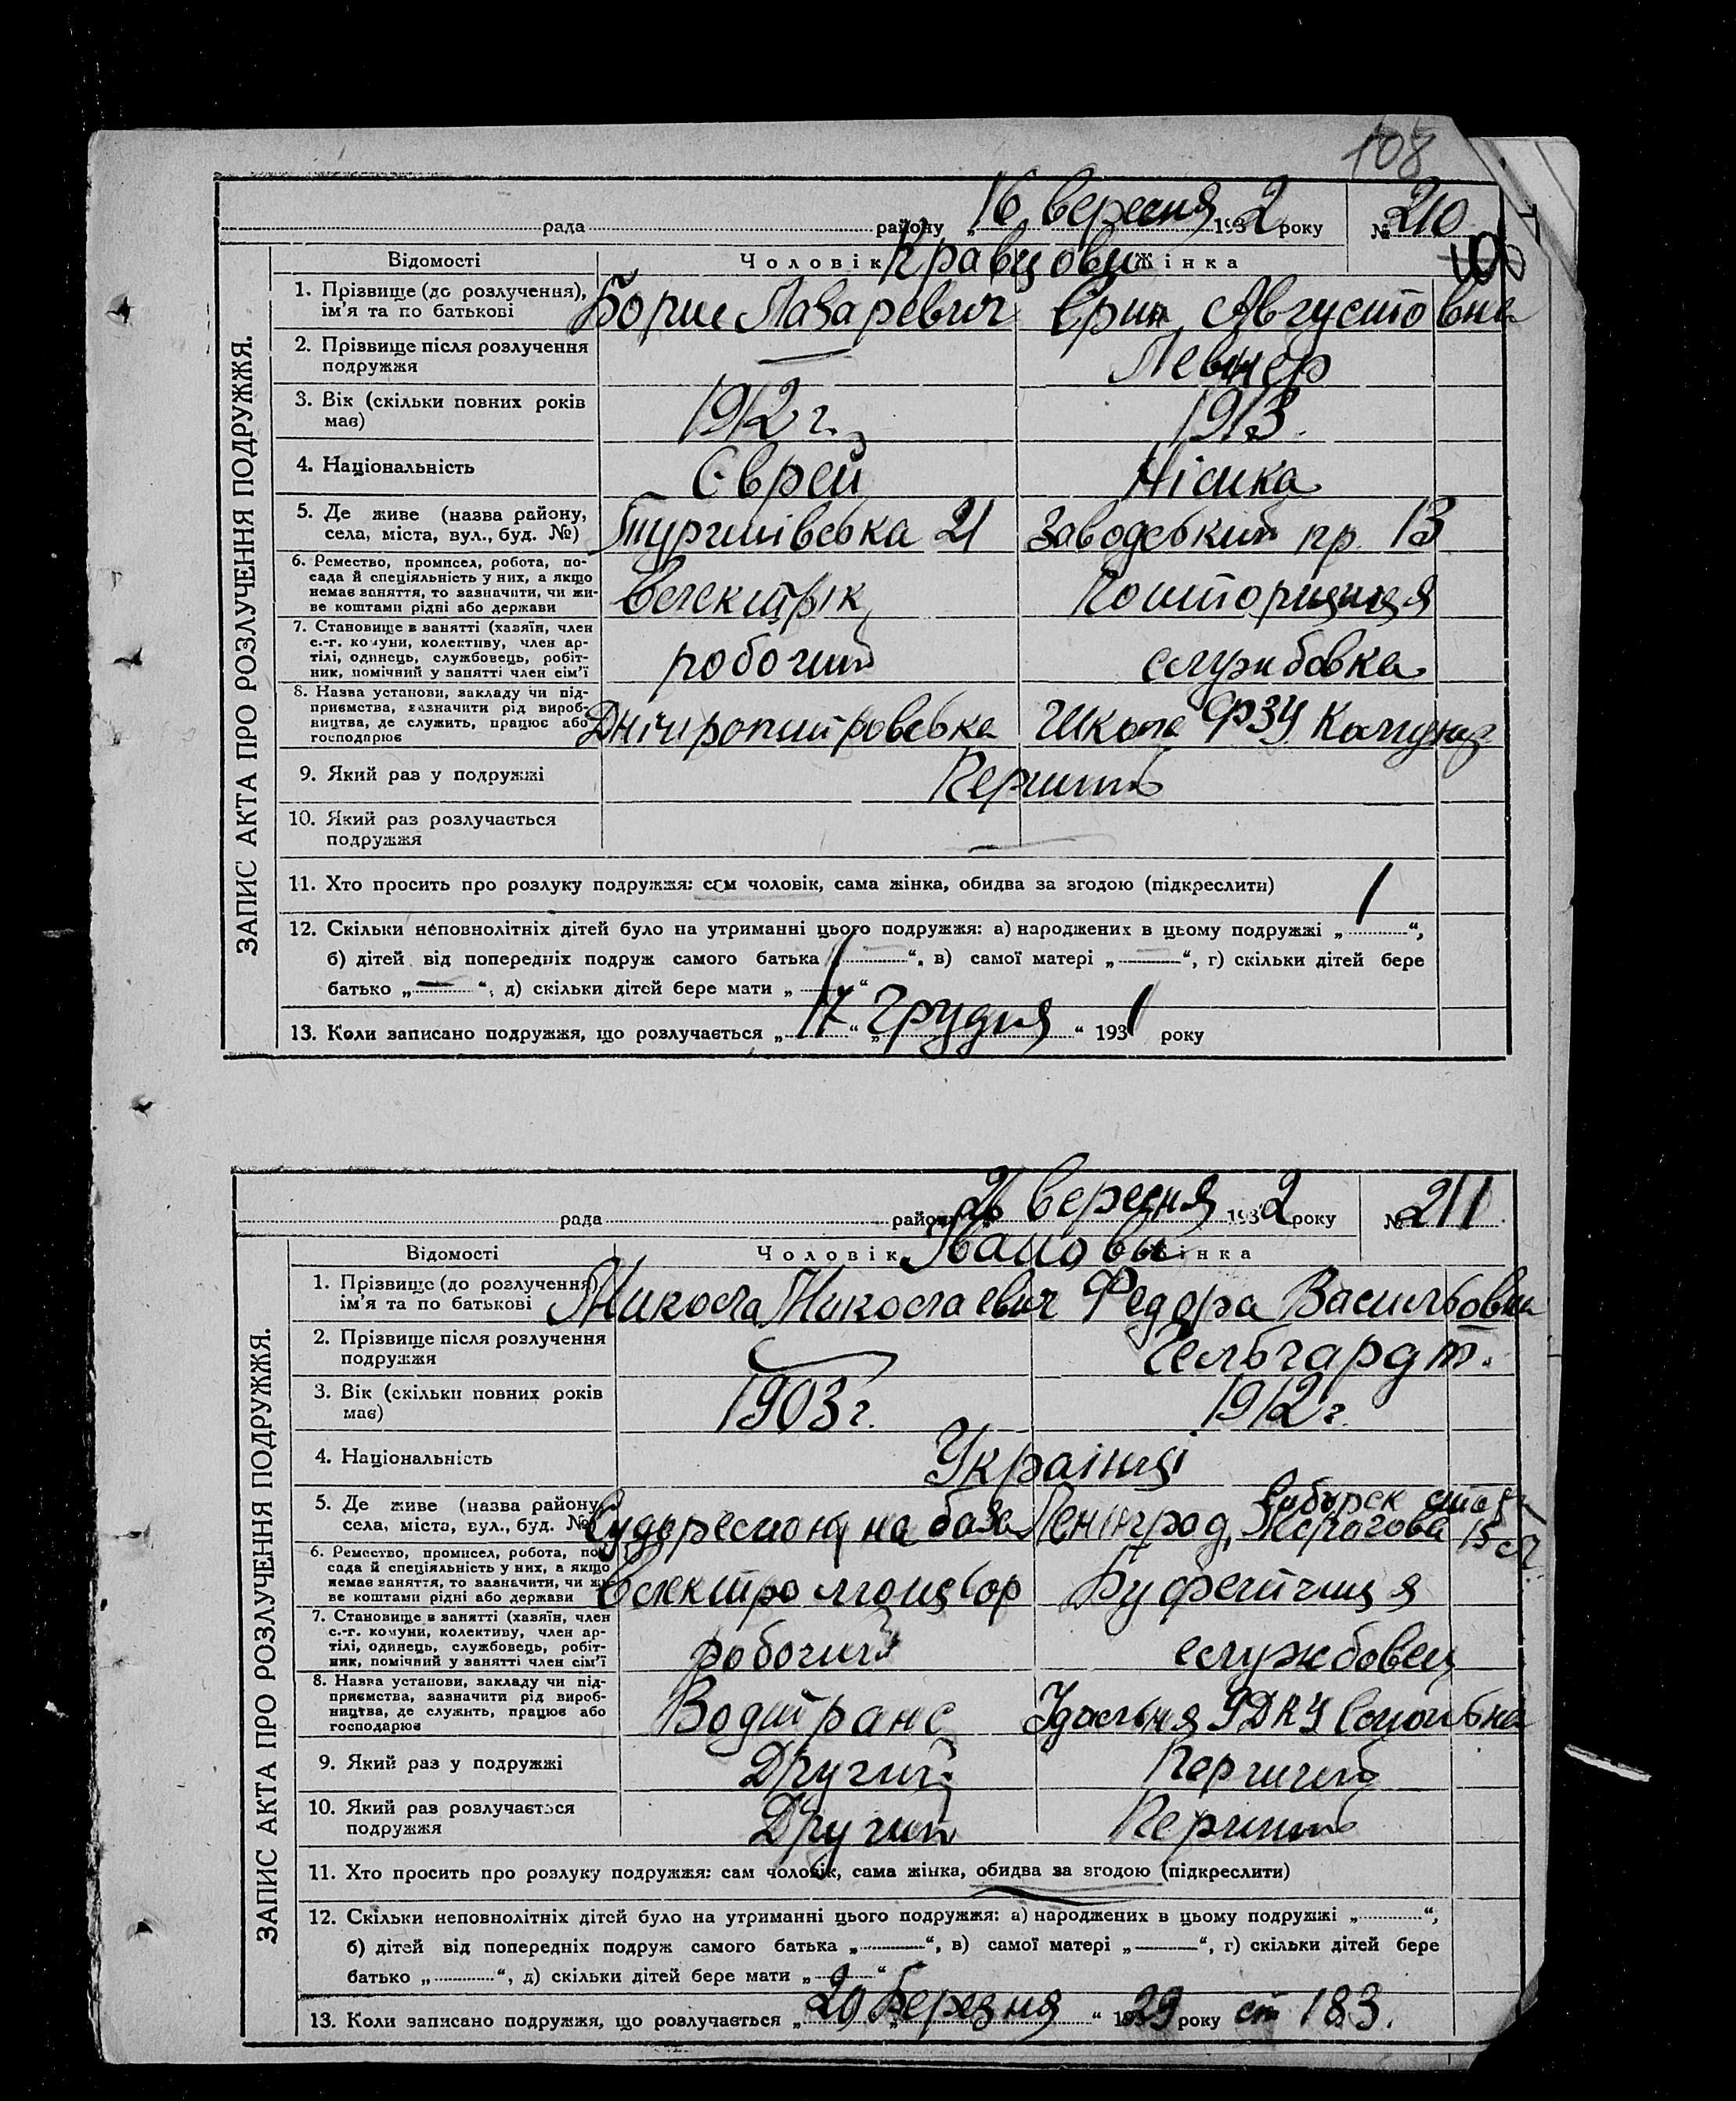 108
рада района „16 вересня 1932 року № 210
Відомості Чоловік Кравцови Жінка
ЗАПИС АКТА ПРО РОЗЛУЧЕННЯ ПОДРУЖЖЯ.
1. Прізвище (до розлучення), Борис Лазаревич Августовна
ім'я та по батькові
2. Прізвище після розлучення — Левнер
подружжя
3. Вік (скільки повних років 1912 г. 1913.
має)
4. Національність Єврей Німка
5. Де живе (назва району, 21 Заводський пр. 13
села, міста, вул., буд. №)
6. Ремество, промисел, робота, по-
сада й спеціяльність у них, а якщо
немає заняття, то зазначити, чи жи-
ве коштами рідні або держави
7. Становище в занятті (хазяїн, член
с.-г. комуни, колективу, член ар-
тілі, одинець, службовець, робіт- робочий службовка
ник, помічний у занятті член сім'ї
8. Назва установи, закладу чи під-
приємства, зазначити рід вироб-
ництва, де служить, працює або Школа ФЗУ
господарює
9. Який раз у подружжі Перший
10. Який раз розлучається —
подружжя
11. Хто просить про розлуку подружжя: сам чоловік, сама жінка, обидва за згодою (підкреслити)
12. Скільки неповнолітніх дітей було на утриманні цього подружжя: а) народжених в цьому подружжі „ 1 “,
б) дітей від попередніх подруж самого батька „ — “, в) самої матері „ — “, г) скільки дітей бере
батько „ — “, д) скільки дітей бере мати „ 1 “
13. Коли записано подружжя, що розлучається „17“ „Грудня“ 1931 року
рада район „26 вересня 1932 року № 211
Відомості Чоловік Іванови Жінка
ЗАПИС АКТА ПРО РОЗЛУЧЕННЯ ПОДРУЖЖЯ.
1. Прізвище (до розлучення), Микола Николаевич Федора Васильовна
ім'я та по батькові
2. Прізвище після розлучення — Гельгардт.
подружжя
3. Вік (скільки повних років 1903 г. 1912 г.
має)
4. Національність Українці
5. Де живе (назва району, на база Ленінград,
села, міста, вул., буд. №)
6. Ремество, промисел, робота, по-
сада й спеціяльність у них, а якщо
немає заняття, то зазначити, чи жи- Буфетчиця
ве коштами рідні або держави
7. Становище в занятті (хазяїн, член
с.-г. комуни, колективу, член ар-
тілі, одинець, службовець, робіт- робочий службовец
ник, помічний у занятті член сім'ї
8. Назва установи, закладу чи під-
приємства, зазначити рід вироб-
ництва, де служить, працює або Водтранс Їдальня
господарює
9. Який раз у подружжі Другий Перший
10. Який раз розлучається Другий Перший
подружжя
11. Хто просить про розлуку подружжя: сам чоловік, сама жінка, обидва за згодою (підкреслити)
12. Скільки неповнолітніх дітей було на утриманні цього подружжя: а) народжених в цьому подружжі „ “,
б) дітей від попередніх подруж самого батька „ “, в) самої матері „ — “, г) скільки дітей бере
батько „ “, д) скільки дітей бере мати „ “
13. Коли записано подружжя, що розлучається „20 „Березня “ 1929 року ст 183.